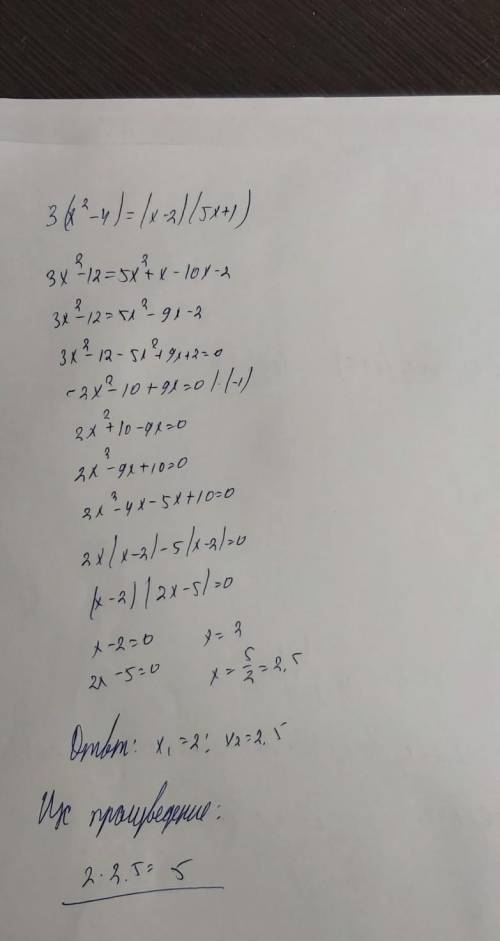 3(x²-4)=(x-2)(5x+1)
3x²-12=5x²+x-10x-2
3x²-12=5x²-9x-2
3x²-12-5x²+9x+2=0
-2x²-10+9x=0 |·(-1)
2x²+10-9x=0
2x²-9x+10=0
2x²-4x-5x+10=0
2x(x-2)-5(x-2)=0
(x-2)(2x-5)=0
x-2=0 x=2
2x-5=0 x=5/2=2,5
Ответ: x₁=2; x₂=2,5
Их произведение:
2·2,5=5